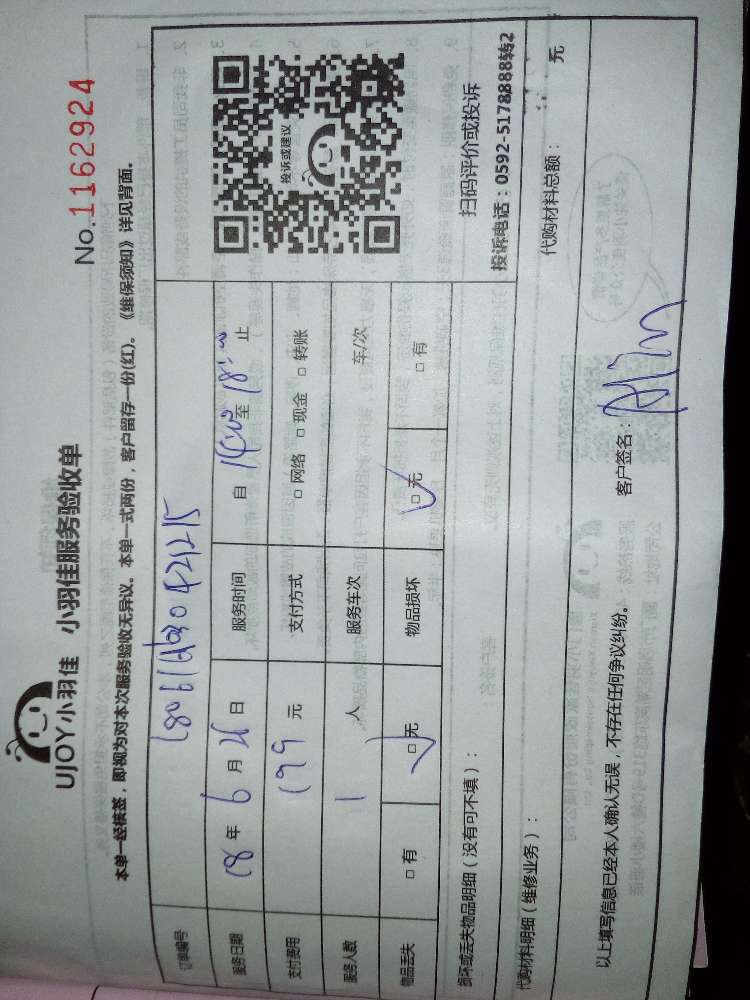 UJOY小羽佳 小羽佳服务验收单
No.1162924
本单一经核签，即视为对本次服务验收无异议。本单一式两份，客户留存一份(红)。《维保须知》详见背面。
订单编号
服务日期 18 年 6 月 日 服务时间 自 至 18:00 止
支付费用 199 元 支付方式 □ 网络 □ 现金 □ 转账
服务人数 1 人 服务车次 车/次
物品丢失 □ 有 □ 无 物品损坏 □ 无 □ 有
投诉或建议
扫码评价或投诉
投诉电话：0592-5178888转2
损坏或丢失物品明细（没有可不填）：
代购材料明细（维修业务）： 代购材料总额： 元
以上填写信息已经本人确认无误，不存在任何争议纠纷。 客户签名：